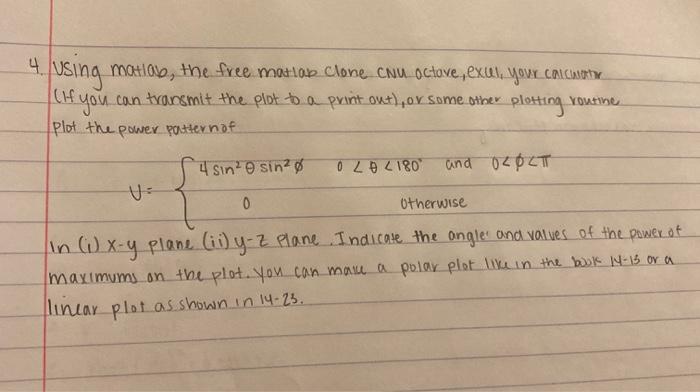 4. Using matlab, the free matlab clone CNU octave, excel, your calculator
(If you can transmit the plot to a print out), or some other plotting routine
plot the power pattern of
U = { 4 sin² θ sin² ϕ 0 < θ < 180° and 0 < ϕ < π
0 otherwise
in (i) x-y plane (ii) y-z plane. Indicate the angles and values of the power of
maximums on the plot. You can make a polar plot like in the book 14-13 or a
linear plot as shown in 14-23.